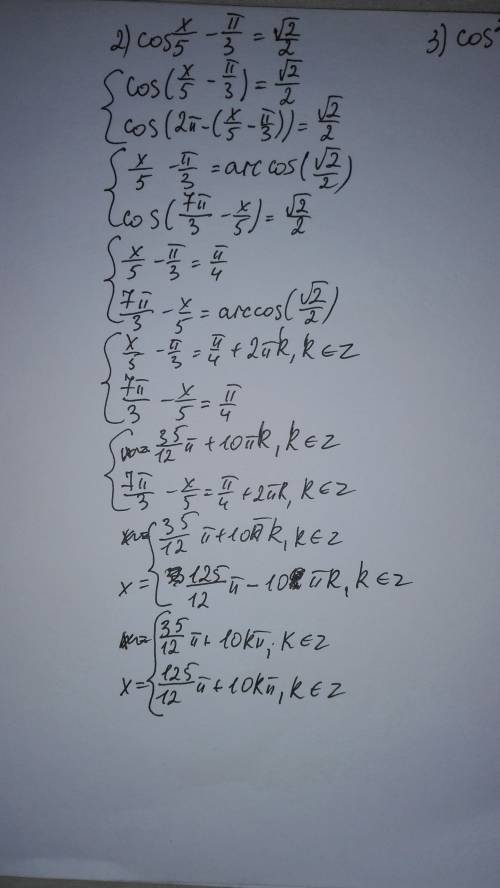 2) cos x/5 - π/3 = √2/2
3) cos
{ cos(x/5 - π/3) = √2/2
cos(2π-(x/5 - π/3)) = √2/2
{ x/5 - π/3 = arccos(√2/2)
cos(7π/3 - x/5) = √2/2
{ x/5 - π/3 = π/4
7π/3 - x/5 = arccos(√2/2)
{ x/5 - π/3 = π/4 + 2πk, k∈Z
7π/3 - x/5 = π/4
{ 35/12 π + 10πk, k∈Z
7π/3 - x/5 = π/4 + 2πk, k∈Z
{ 35/12 π + 10πk, k∈Z
x = 125/12 π - 10πk, k∈Z
{ 35/12 π + 10kπ, k∈Z
x = 125/12 π + 10kπ, k∈Z